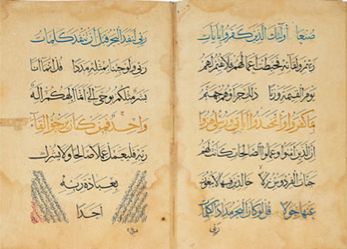 صنعا أولئك الذين كفروا بآيات
ربهم ولقائه فحبطت أعمالهم فلا نقيم لهم
يوم القيمة وزنا ذلك جزاؤهم جهنم
بما كفروا واتخذوا آياتي ورسلي هزوا
إن الذين آمنوا وعملوا الصالحات كانت لهم
جنات الفردوس نزلا خالدين فيها لا يبغون
عنها حولا قل لو كان البحر مدادا لكلمات
ربي
ربي لنفد البحر قبل أن تنفد كلمات
ربي ولو جئنا بمثله مددا قل إنما أنا
بشر مثلكم يوحى إلي أنما إلهكم إله
واحد فمن كان يرجوا لقاء
ربه فليعمل عملا صالحا ولا يشرك
بعبادة ربه
أحدا